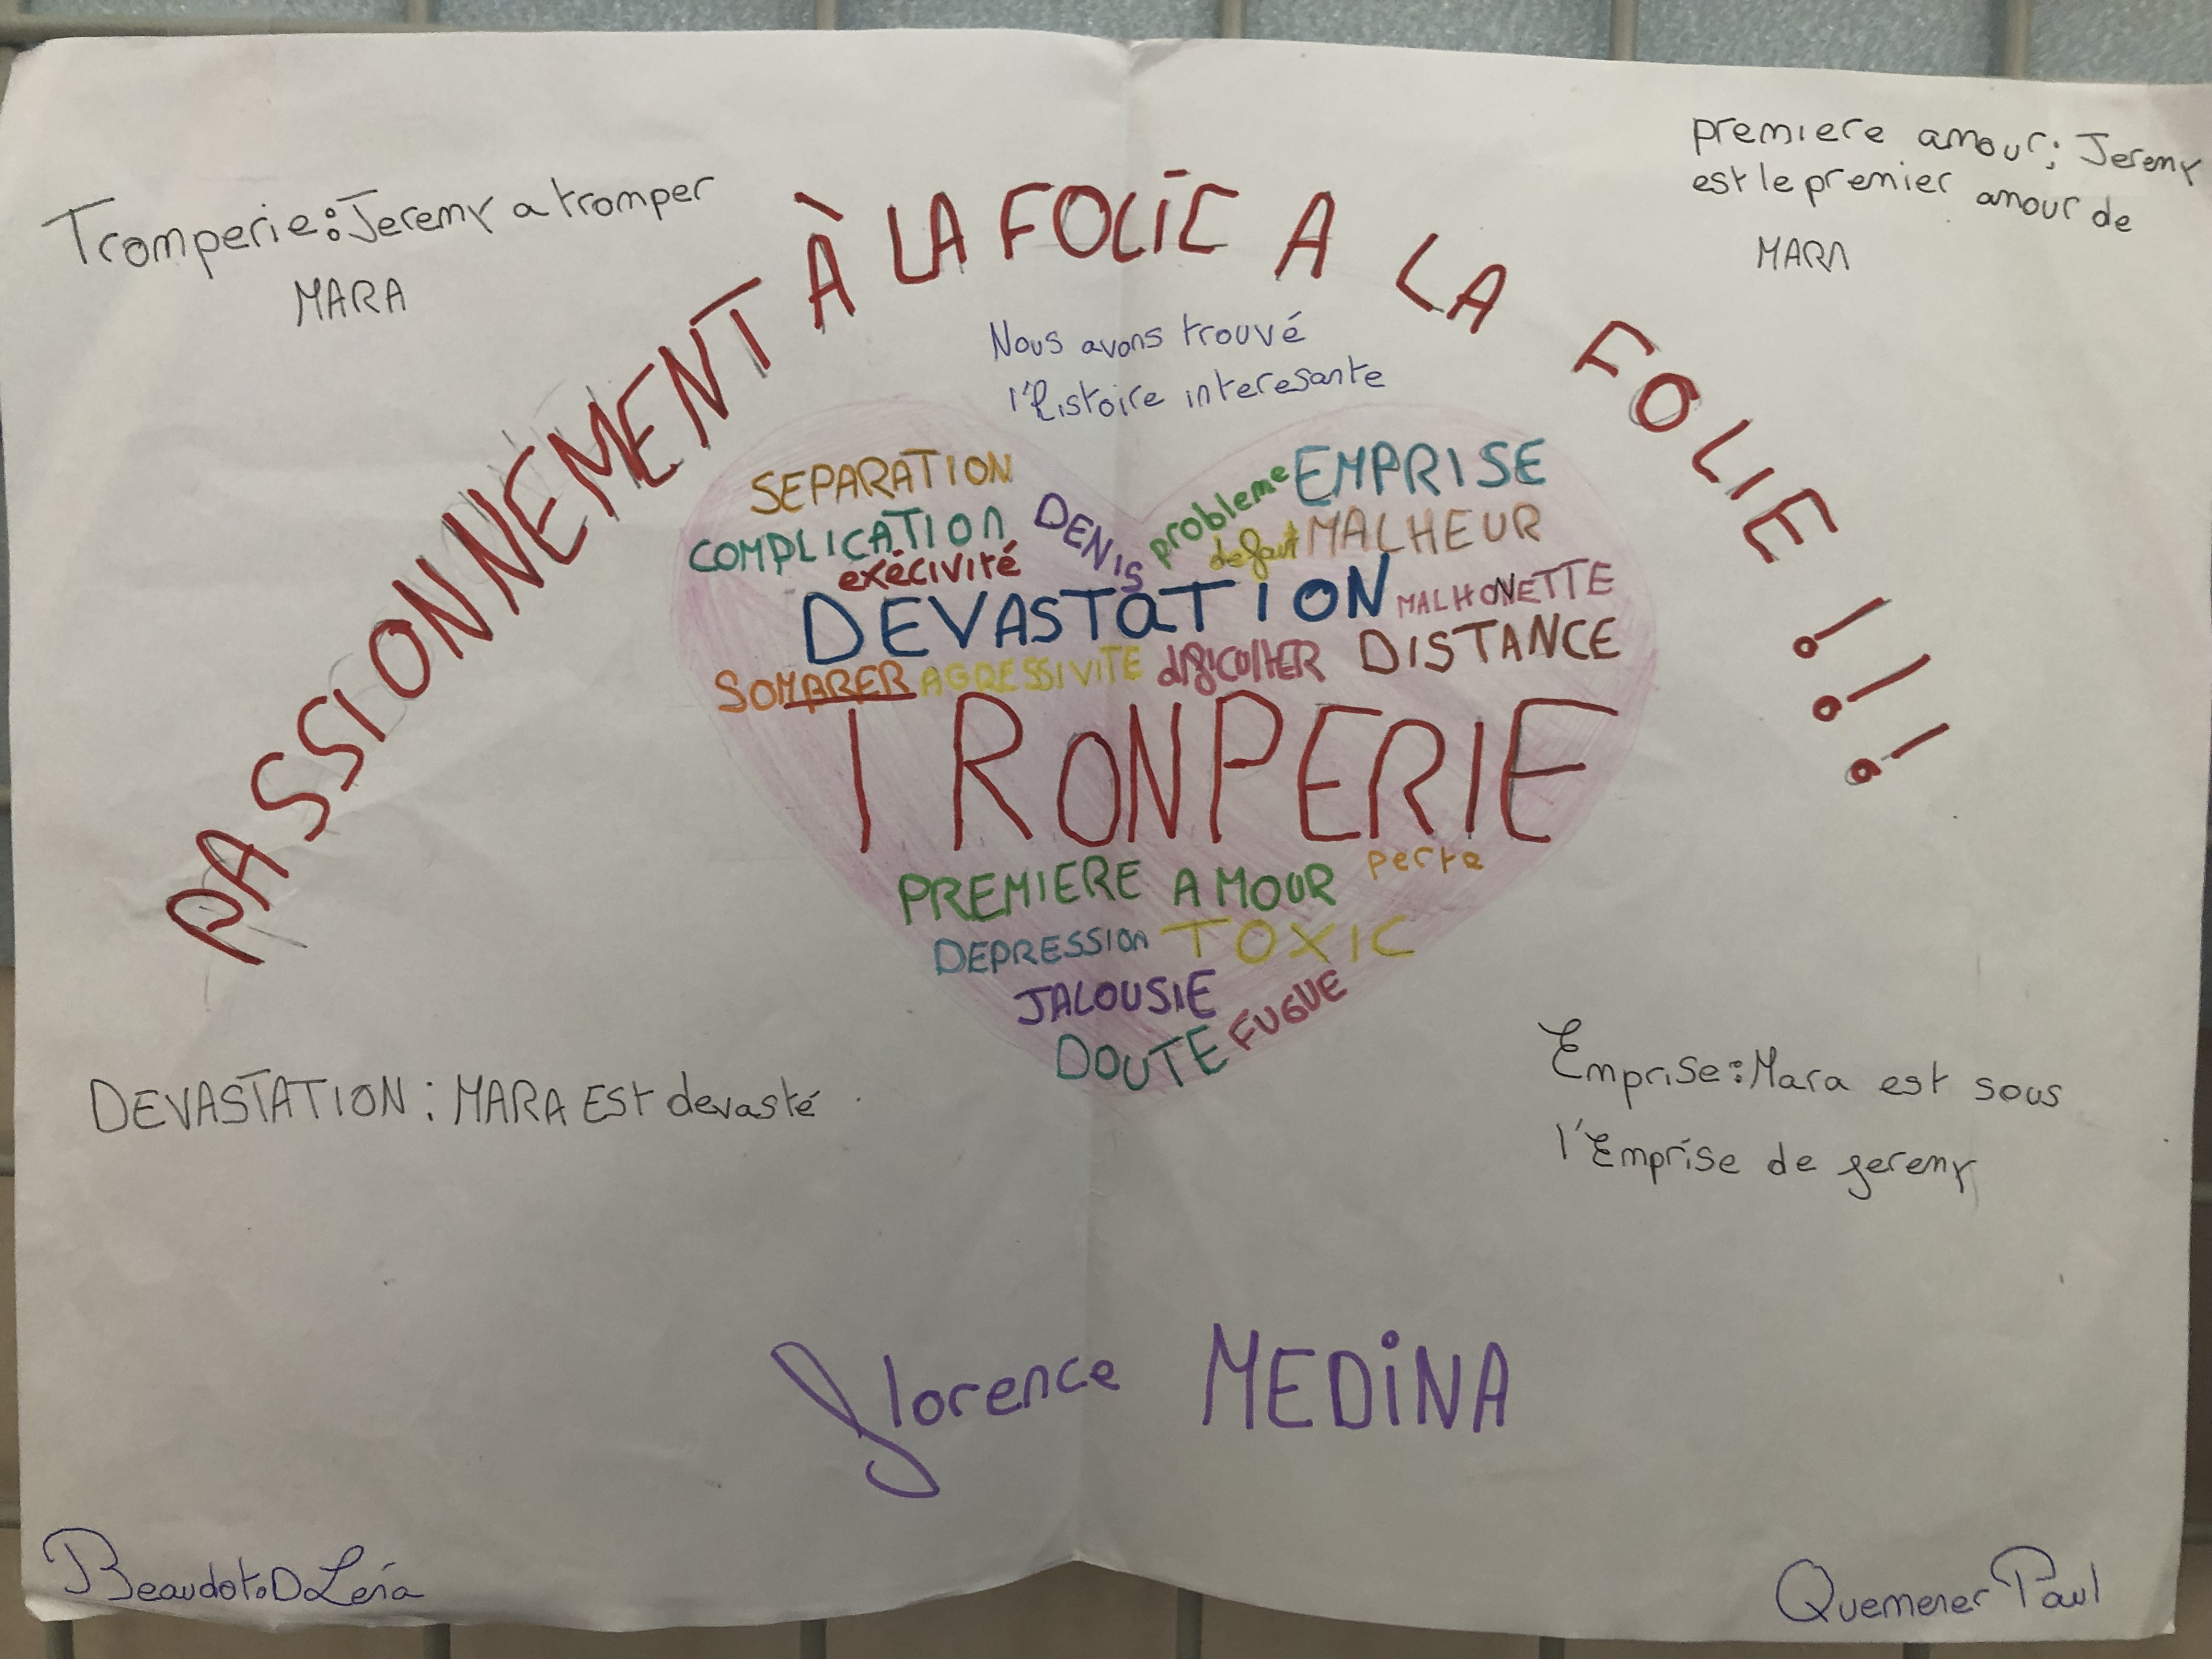 Tromperie: Jeremy a tromper
MARA
premiere amour; Jeremy
est le premier amour de
MARA
PASSIONNEMENT À LA FOLIE A LA FOLIE !!!
Nous avons trouvé
l'histoire interesante
SEPARATION
DENIS
probleme
EMPRISE
COMPLICATION
defaut
MALHEUR
exécivité
DEVASTATION
MALHONETTE
SOMBRER
AGRESSIVITE
difficulter
DISTANCE
TRONPERIE
PREMIERE AMOUR
perte
DEPRESSION
TOXIC
JALOUSIE
FUGUE
DOUTE
DEVASTATION: MARA Est devasté
Emprise: Mara est sous
l'Emprise de jeremy
florence MEDiNA
Beaudot.D Léna
Quemener Paul